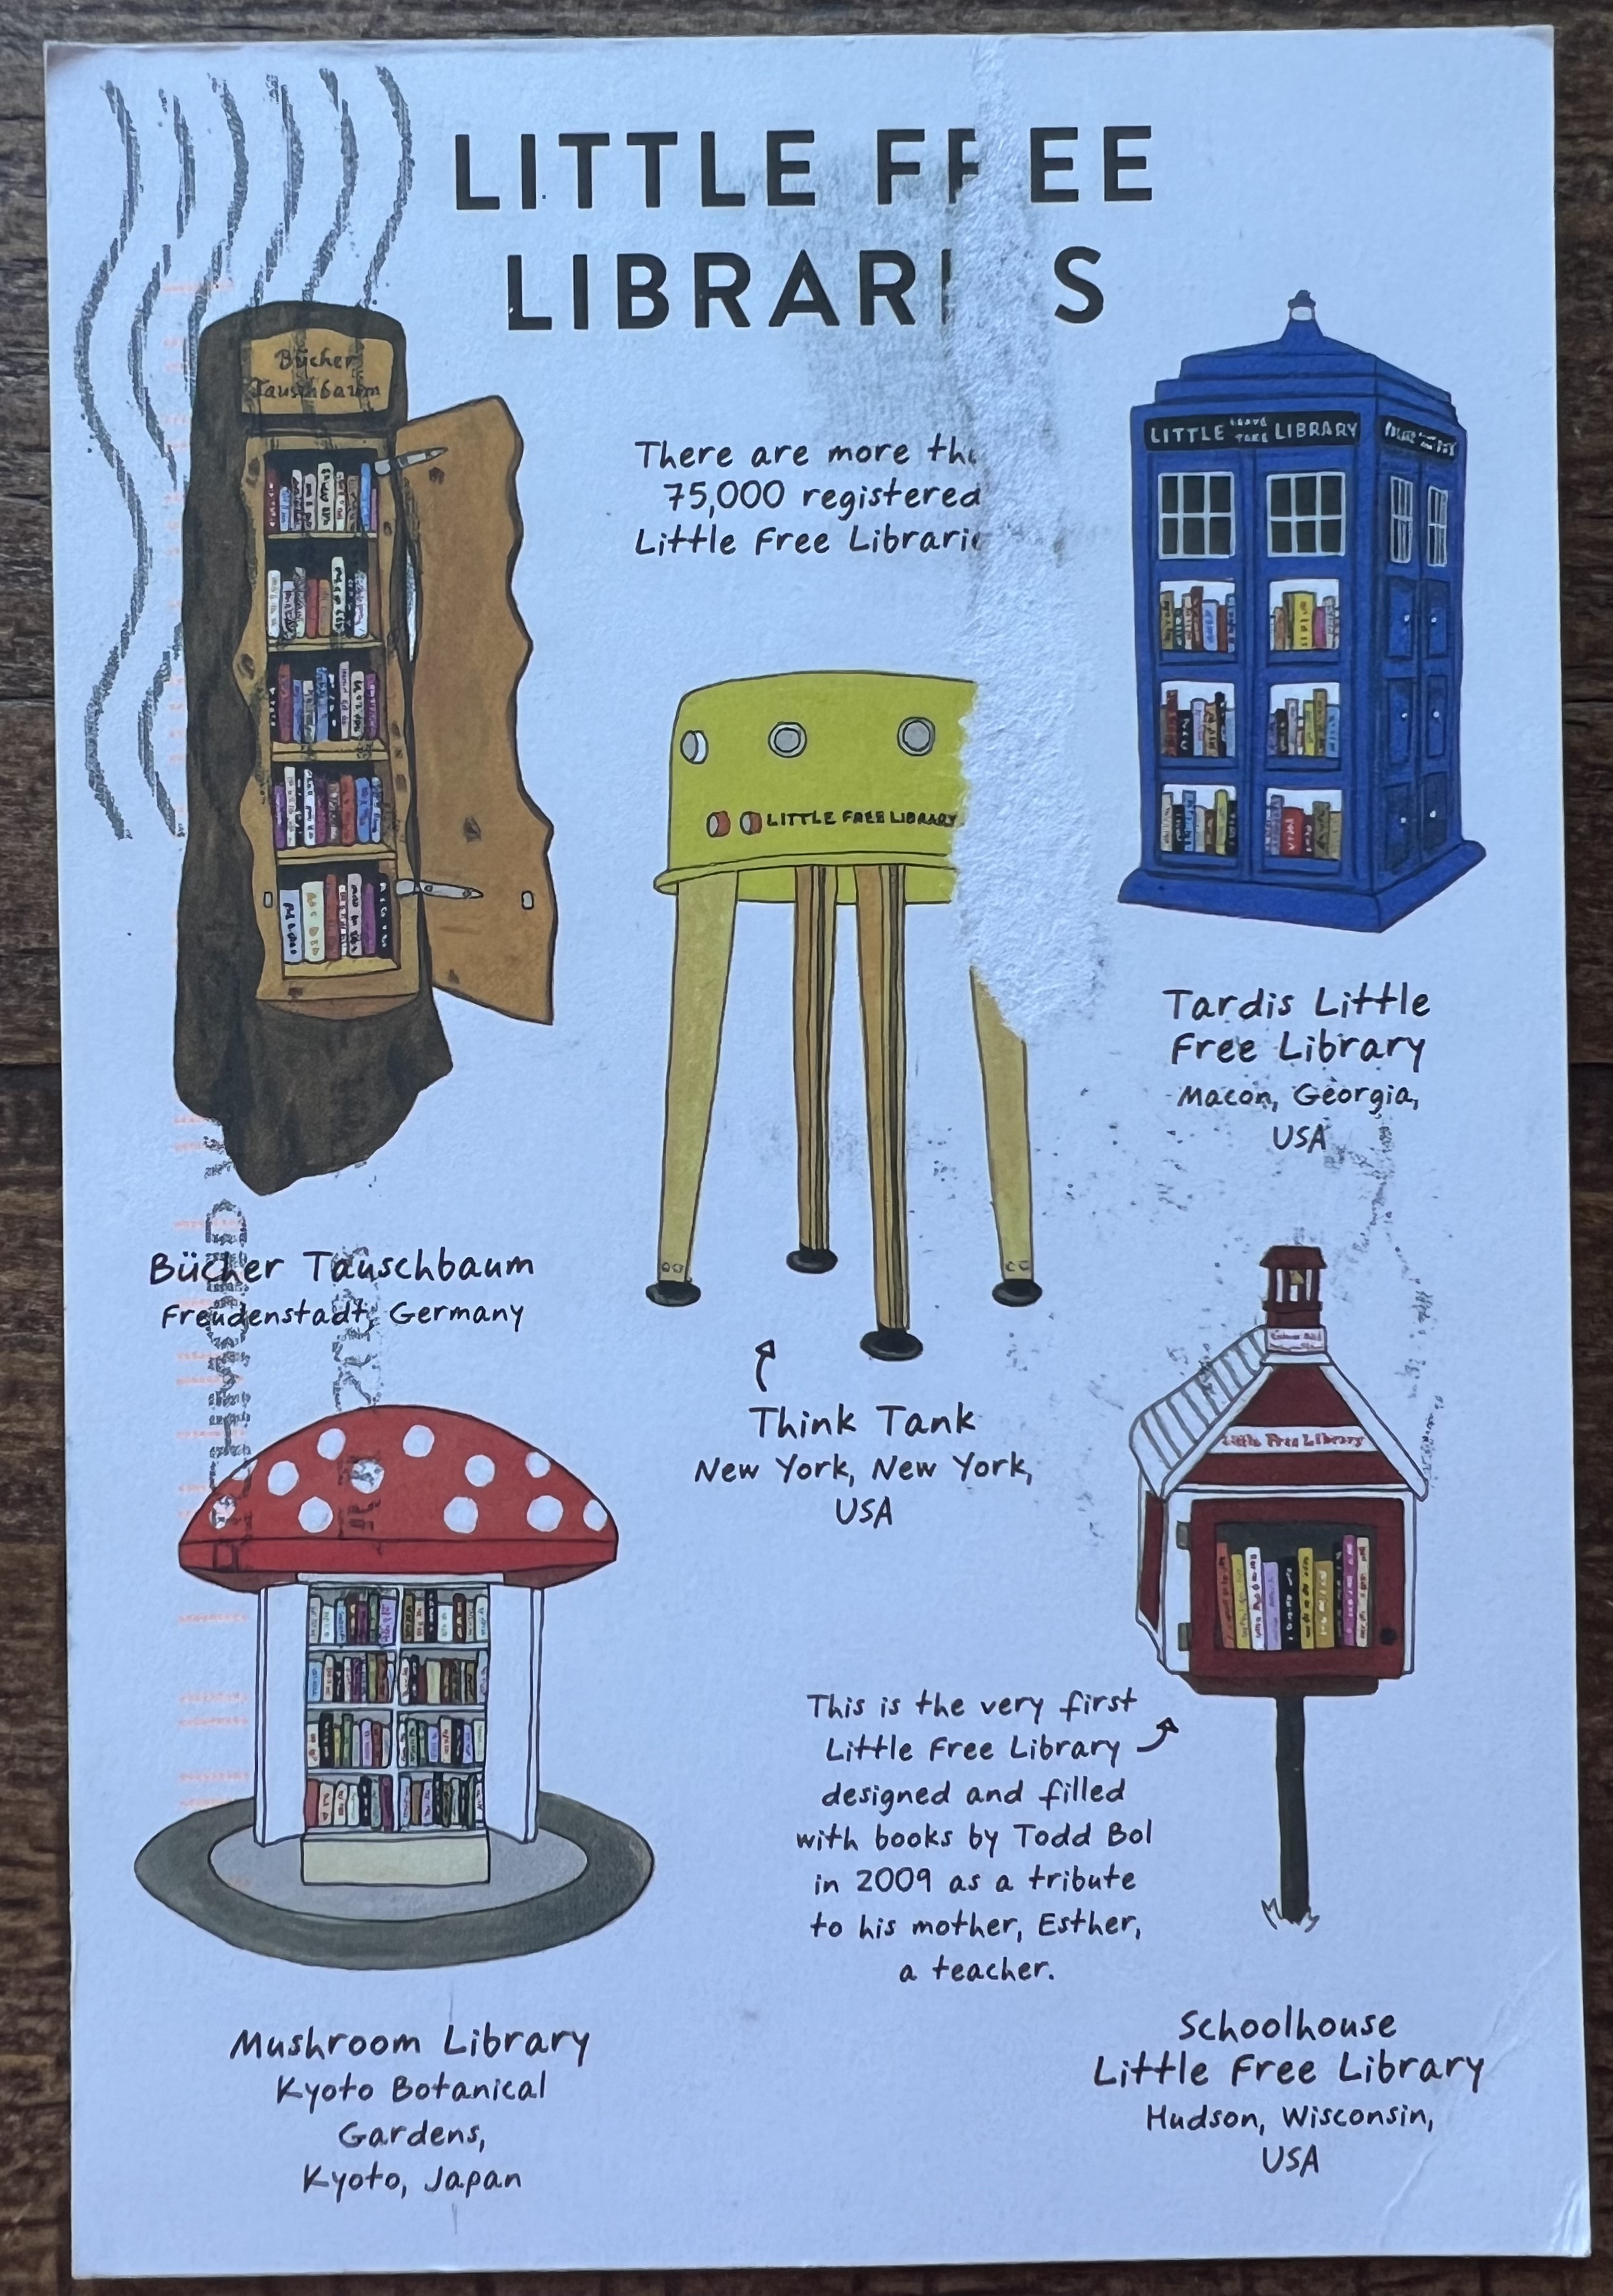 LITTLE FREE
LIBRARI S
There are more tha
75,000 registered
Little Free Librarie
Bücher
Tauschbaum
LITTLE LEAVE TAKE LIBRARY
LITTLE FREE LIBRARY
Tardis Little
Free Library
Macon, Georgia,
USA
Bücher Tauschbaum
Freudenstadt, Germany
Think Tank
New York, New York,
USA
Little Free Library
This is the very first
Little Free Library
designed and filled
with books by Todd Bol
in 2009 as a tribute
to his mother, Esther,
a teacher.
Mushroom Library
Kyoto Botanical
Gardens,
Kyoto, Japan
Schoolhouse
Little Free Library
Hudson, Wisconsin,
USA